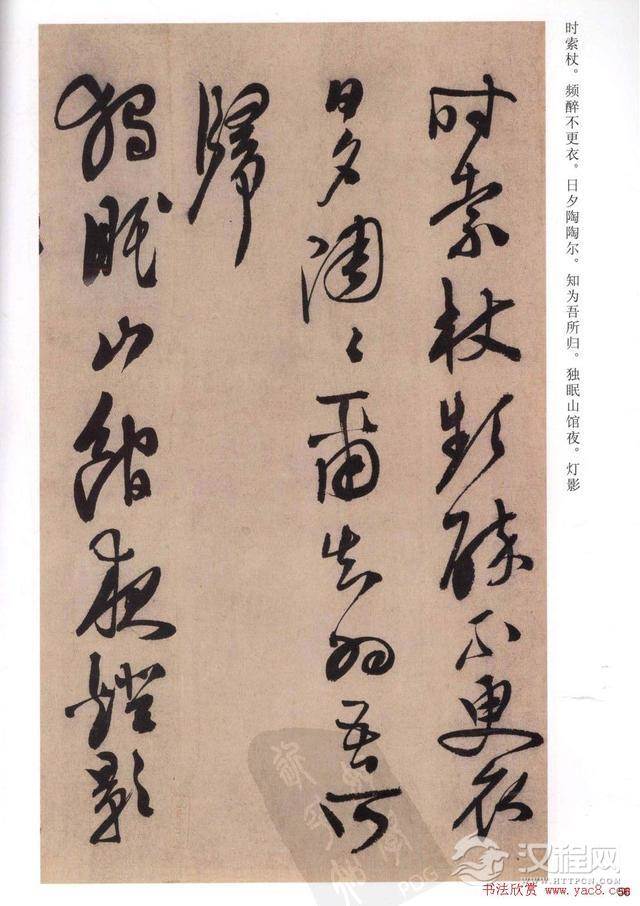 时索杖。频醉不更衣。日夕陶陶尔。知为吾所归。独眠山馆夜。灯影
时索杖頻醉不更衣
日夕陶々爾吾
歸
獨眠山館夜燈影
汉程网
WWW.HTTPCN.COM
书法欣赏 www.yac8.com
56
PDG